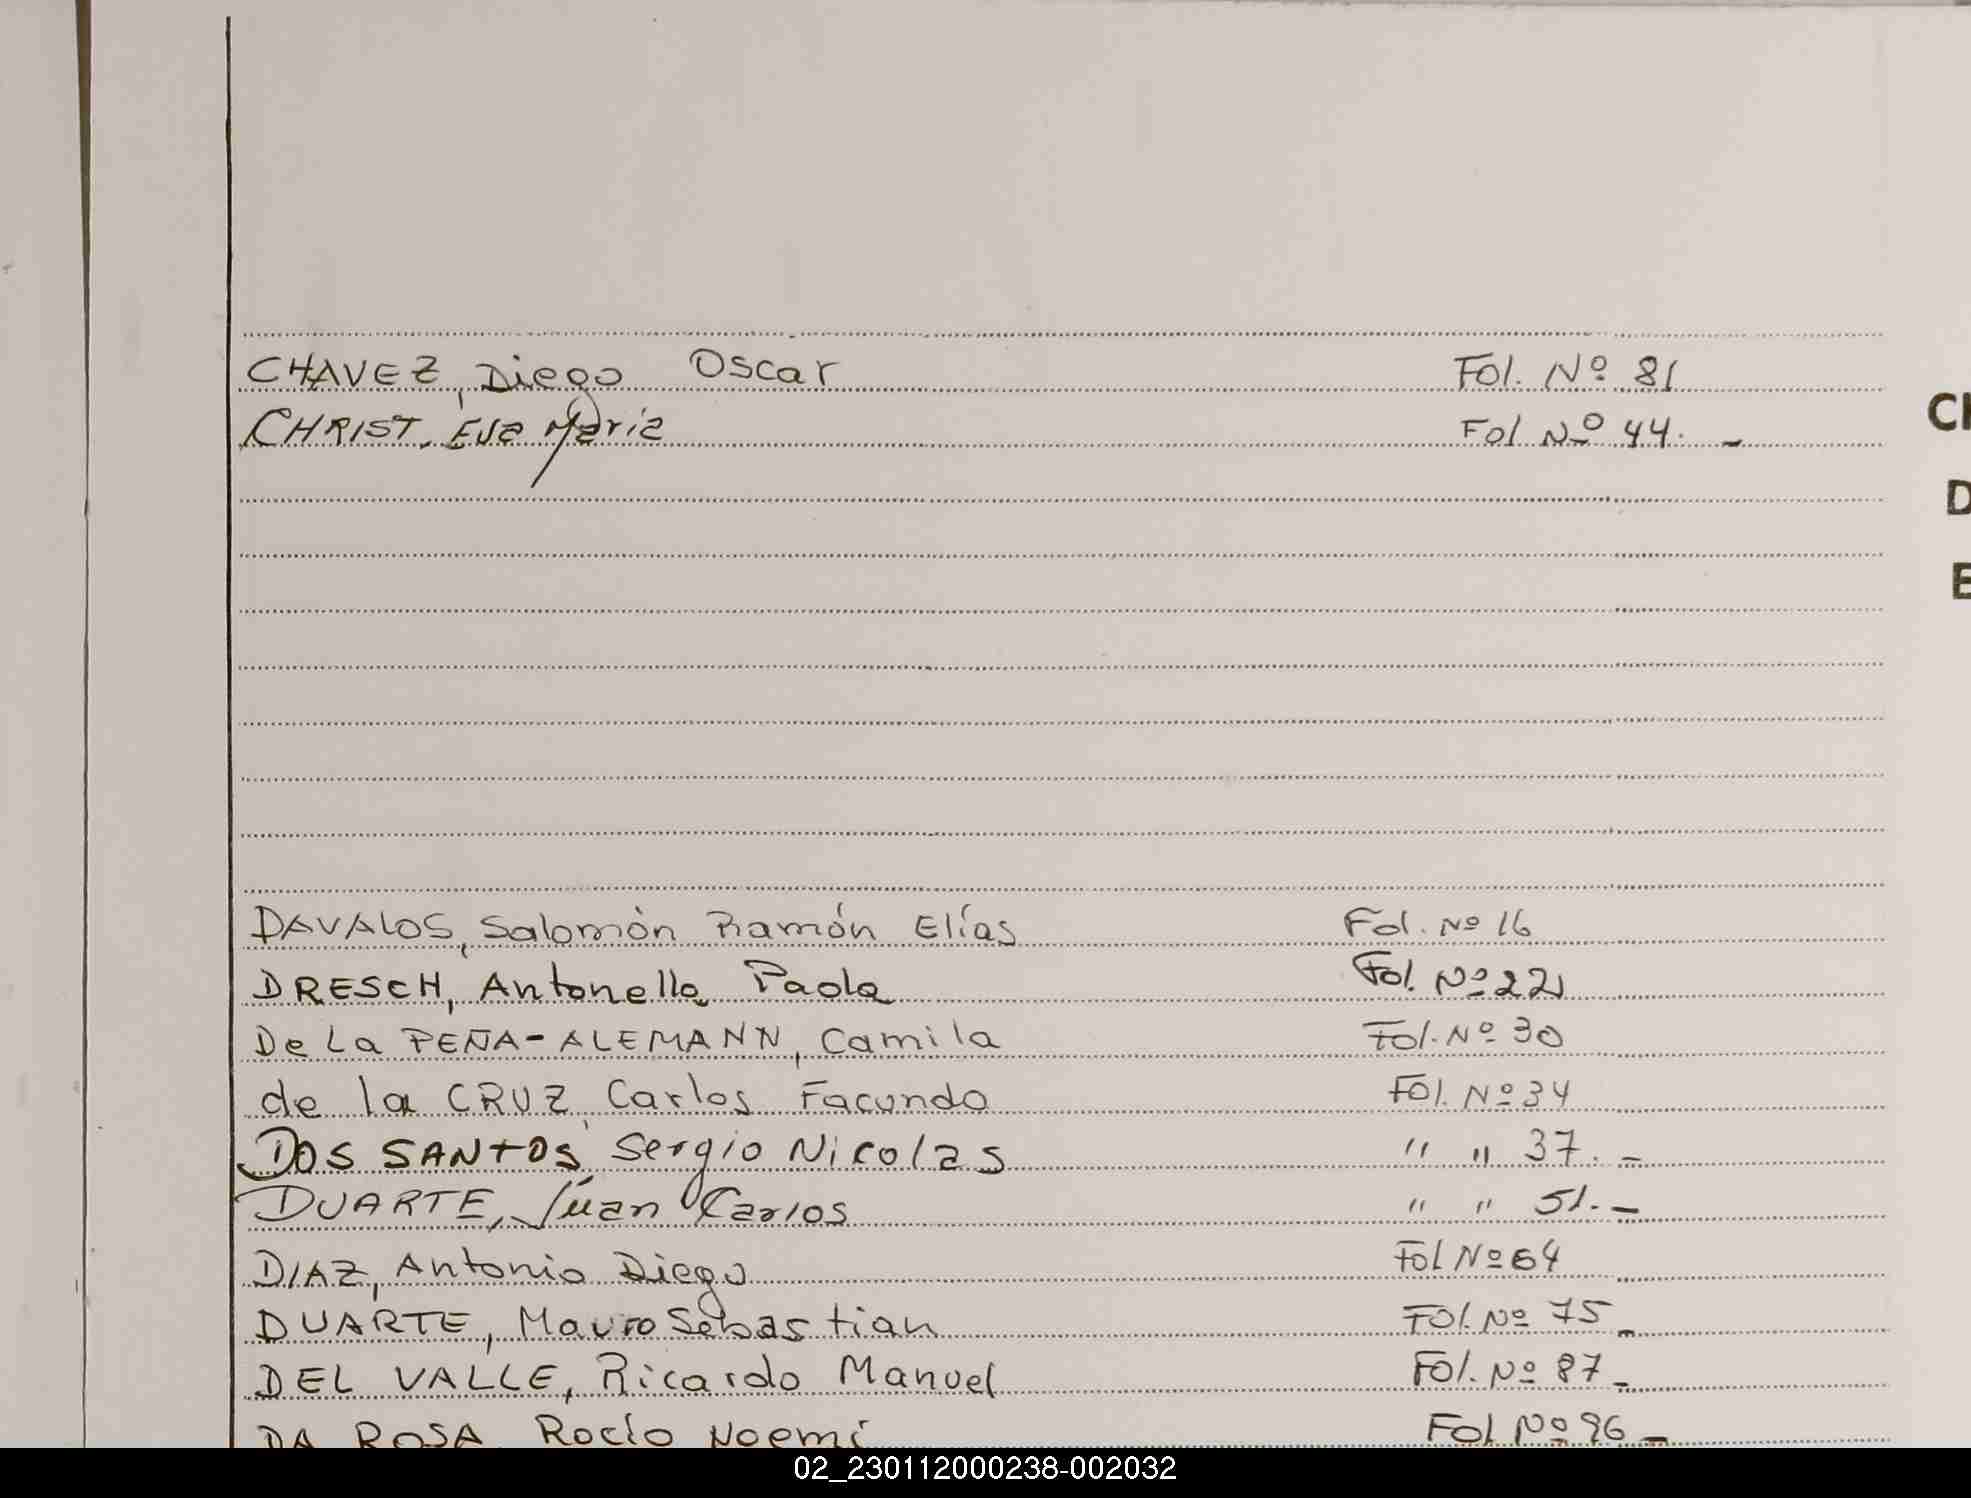 CHAVEZ, Diego Oscar Fol. Nº 81
CHRIST, Eva Maria Fol Nº 44. -
DAVALOS, Salomón Ramón Elías Fol. Nº 16
DRESCH, Antonella Paola Fol. Nº 22
De La PEÑA-ALEMANN, Camila Fol. Nº 30
de la CRUZ, Carlos Facundo Fol. Nº 34
DOS SANTOS, Sergio Nicolas " " 37. -
DUARTE, Juan Carlos " " 51. -
DIAZ, Antonio Diego Fol Nº 64
DUARTE, Mauro Sebastian Fol. Nº 75 -
DEL VALLE, Ricardo Manuel Fol. Nº 87 -
DA ROSA Rocío Noemí Fol Nº 96 -
D
02_230112000238-002032